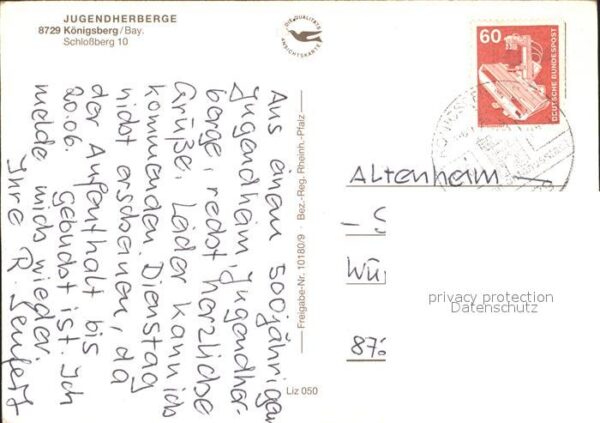 JUGENDHERBERGE
8729 Königsberg/Bay.
Schloßberg 10
DIE QUALITÄTS
ANSICHTSKARTE
60
DEUTSCHE BUNDESPOST
Aus einem 500jährigen
Jugendheim, Jugendher-
berge, recht herzliche
Grüße. Leider kann ich
kommenden Dienstag
nicht erscheinen, da
der Aufenthalt bis
20.06. gebucht ist. Ich
melde mich wieder.
Ihre R.
Freigabe-Nr. 10180/9 · Bez.-Reg. Rheinh.-Pfalz
Liz 050
Altenheim
Wü
87
privacy protection
Datenschutz